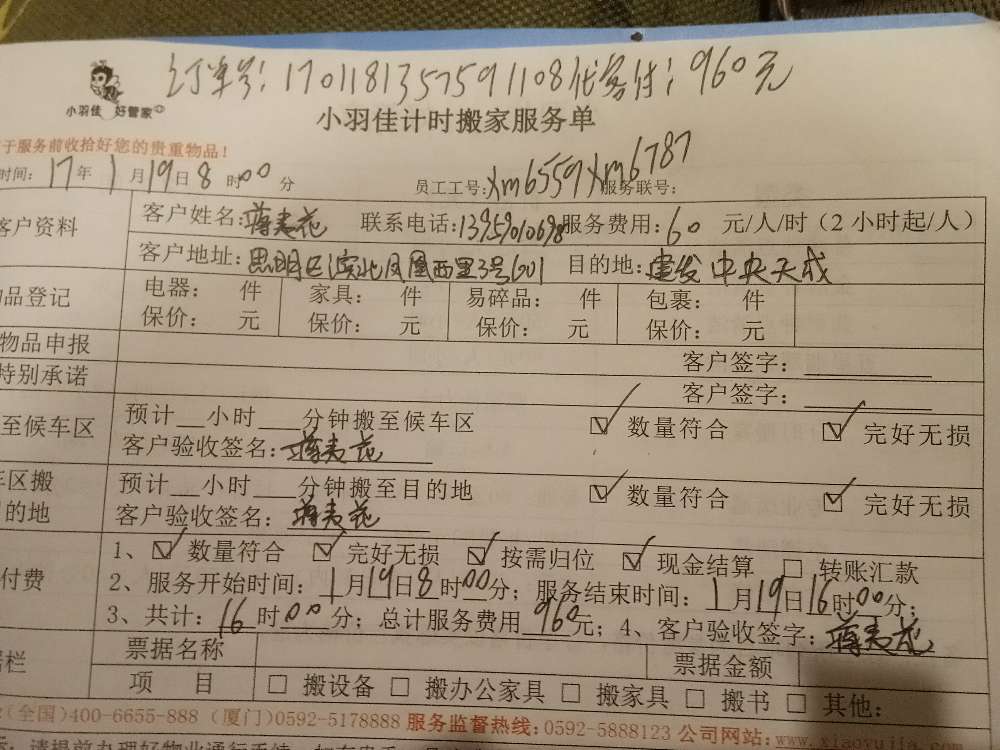 订单号:1701181357591108代客付:960元
小羽佳 好管家
小羽佳计时搬家服务单
于服务前收拾好您的贵重物品!
时间:17年1月19日8时00分 员工工号:xm6559 xm6787 服务联号:
客户资料 客户姓名: 联系电话:13959010698 服务费用:60 元/人/时(2小时起/人)
客户地址:思明区滨北凤凰西里3号601 目的地:建发中央天成
品登记 电器: 件 家具: 件 易碎品: 件 包裹: 件
保价: 元 保价: 元 保价: 元 保价: 元
物品申报 客户签字:
特别承诺 客户签字:
至候车区 预计__小时___分钟搬至候车区 ☑ 数量符合 ☑ 完好无损
客户验收签名:
车区搬 预计__小时___分钟搬至目的地 ☑ 数量符合 ☑ 完好无损
的地 客户验收签名:
1、☑ 数量符合 ☑ 完好无损 ☑ 按需归位 ☑ 现金结算 □ 转账汇款
付费 2、服务开始时间:1月19日8时00分;服务结束时间:1月19日16时00分;
3、共计:16时00分;总计服务费用960元;4、客户验收签字:
据栏 票据名称 票据金额
项 目 □ 搬设备 □ 搬办公家具 □ 搬家具 □ 搬书 □ 其他:
(全国)400-6655-888 (厦门)0592-5178888 服务监督热线:0592-5888123 公司网站:www.xiaoyujia